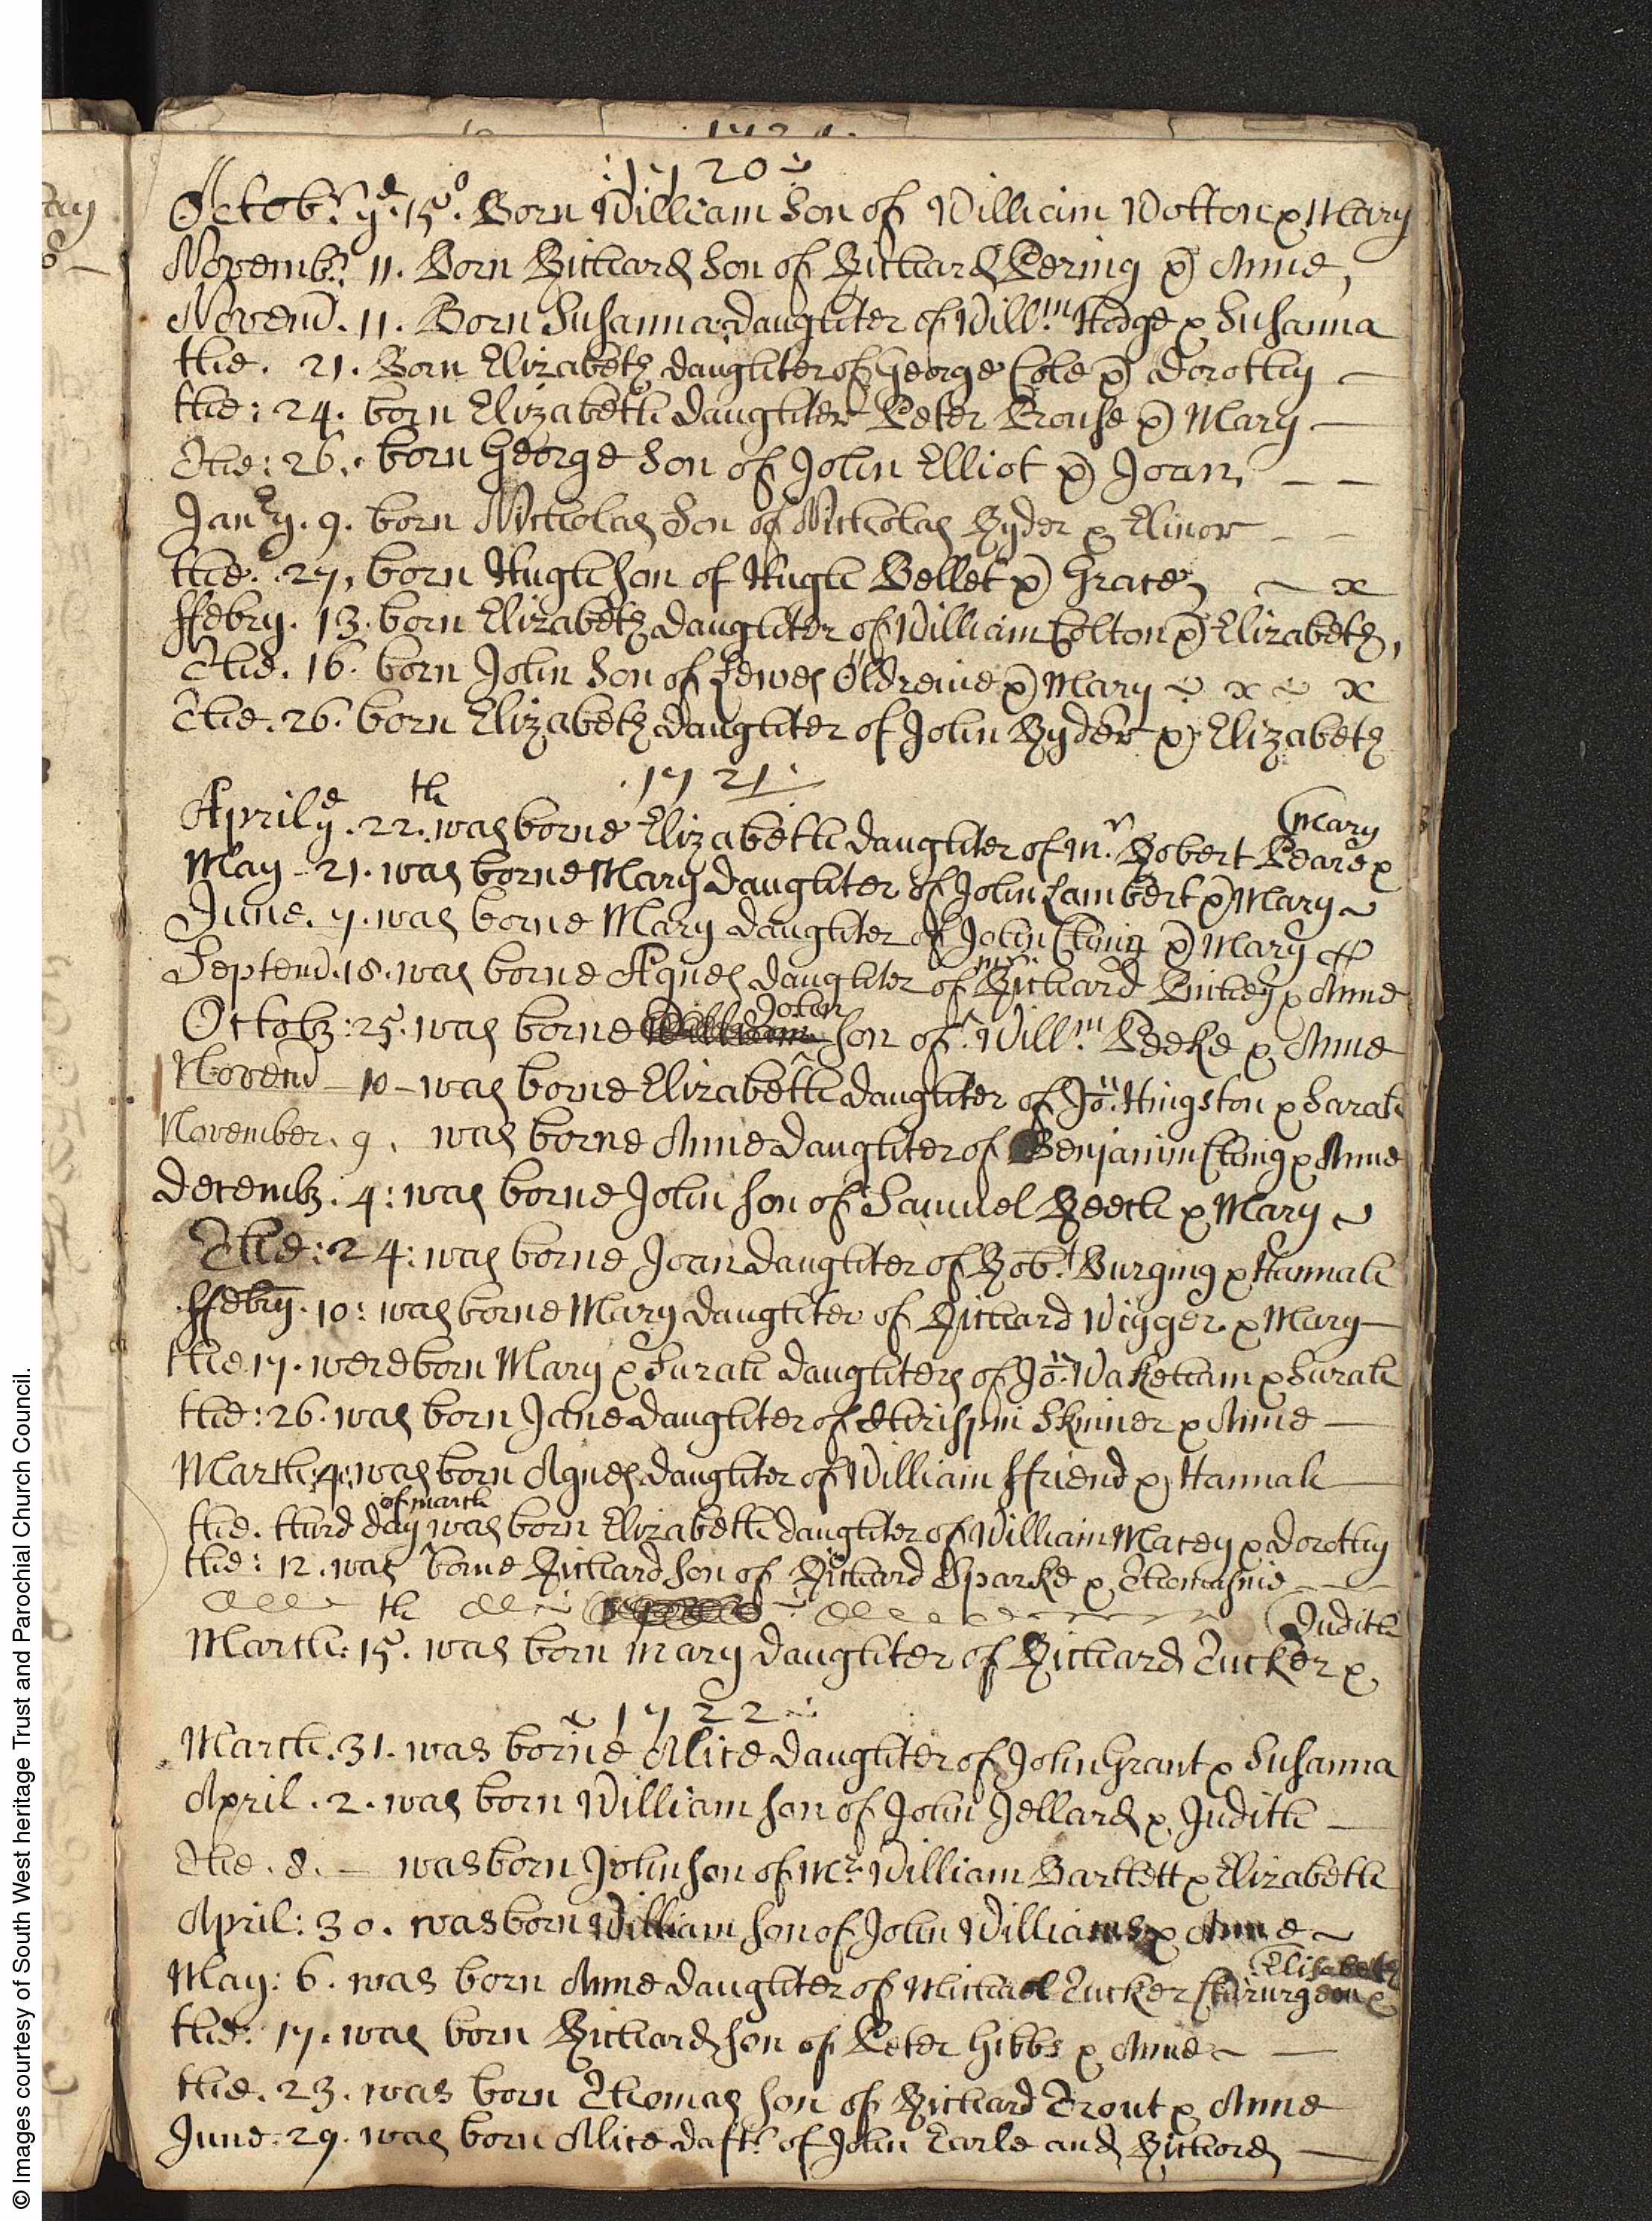 1720
Octobr. ye. 15o. Born William Son of William Wotton & Mary
Novembr. 11. Born Richard Son of Richard Pering & Anne,
Novem. 11. Born Susanna daughter of Willm. Hodge & Susanna
the. 21. Born Elizabeth daughter of George Cole & Dorothy —
the: 24. born Elizabeth daughter Peter Prouse & Mary —
The: 26. born George Son of John Elliot & Joan, — —
Janry. 9. born Nicholas Son of Nicholas Ryder & Elinor — —
the. 27, born Hugh son of Hugh Bellet & Grace, ~ x
ffebry. 13. born Elizabeth daughter of William Colton & Elizabeth,
The. 16. born John Son of Lewes & Mary ~ x ~ x
The. 26. born Elizabeth daughter of John Ryder & Elizabeth
1721
(Mary
April ye. 22.th was borne Elizabeth daughter of Mr. Robert Peare &
May - 21. was borne Mary daughter of John Lambert & Mary ~
June. 7. was borne Mary daughter of John Ching & Mary
Septem. 18. was borne Agnes daughter of mr. Richard & Anne
John
Octobr: 25. was borne William son of Willm. Peeke & Anne
Novem — 10 — was borne Elizabeth daughter of Jon. Hingston & Sarah
November. 9. was borne Anne daughter of Benjamin Ching & Anne
Decembr. 4: was borne John son of Samuel Reech & Mary ~
The: 24: was borne Joan daughter of Robt. Burging & Hannah
ffebry. 10: was borne Mary daughter of Richard Wigger & Mary —
the 17. were born Mary & Sarah daughters of Jon. Wakeham & Sarah
the: 26. was born Jane daughter of Skinner & Anne —
March: 4: was born Agnes daughter of William ffriend & Hannah —
of march
the. third day was born Elizabeth daughter of William Macey & Dorothy
the: 12. was borne Richard son of Richard Sparke & Thomasine — — —
(Judith
March: 15.th was born Mary daughter of Richard Tucker &
1722
March. 31. was borne Alice daughter of John Grant & Susanna
April. 2. was born William son of John Jellard & Judith —
The. 8. — was born John son of Mr. William Bartlett & Elizabeth
April: 30. was born William son of John Williams & Anne ~
(Elisabeth
May: 6. was born Anne daughter of Michael Tucker Chirurgeon &
the: 17. was born Richard son of Peter Gibbs & Anne ~ —
the. 23. was born Thomas son of Richard Trout & Anne
June: 29. was born Alice daftr. of John Earle and Richord —
© Images courtesy of South West heritage Trust and Parochial Church Council.